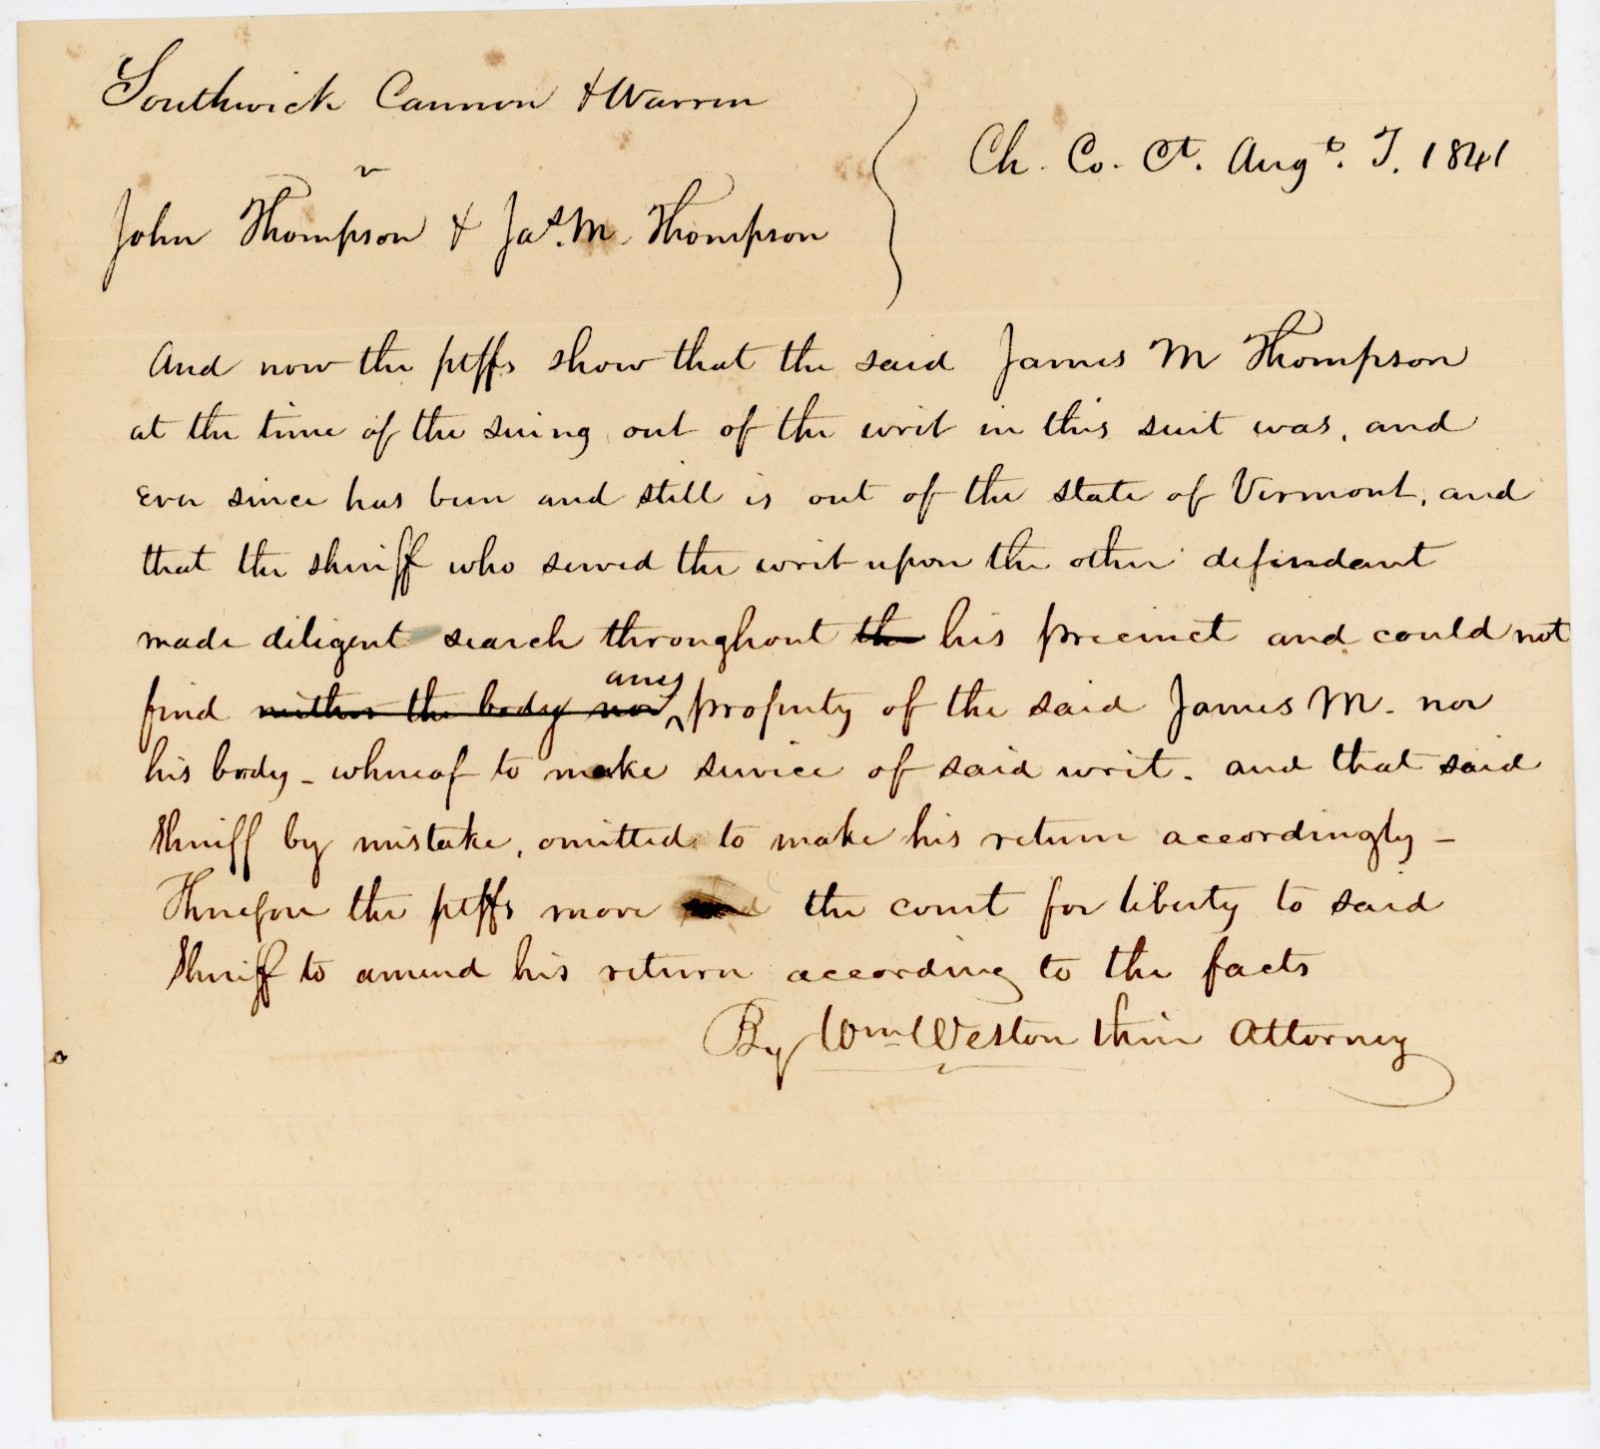 Southwick Cannon & Warren
v
John Thompson & Jas. M. Thompson
Ch. Co. Ct. Augt. T. 1841
And now the ptffs show that the said James M Thompson
at the time of the suing out of the writ in this suit was, and
ever since has been and still is out of the state of Vermont, and
that the sheriff who served the writ upon the other defendant
made diligent search throughout the his precinct and could not
find neither the body nor any property of the said James M. nor
his body - whereof to make service of said writ. and that said
Sheriff by mistake, omitted to make his return accordingly -
Therefore the ptffs move the court for liberty to said
Sheriff to amend his return according to the facts
By Wm Weston their Attorney